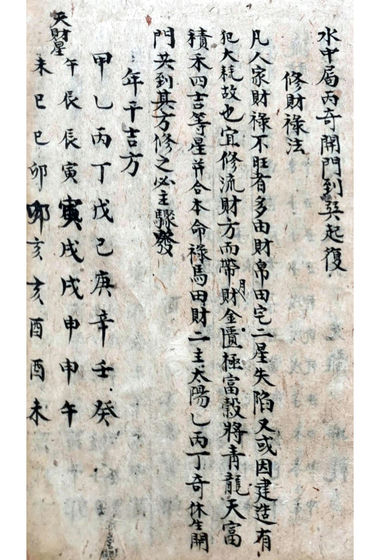 水中局丙奇開門到巽起復
修財祿法
凡人家財祿不旺者多由財帛田宅二星失陷又或因建造有
犯大耗故也宜修流財方而帶月財金匱極富穀將青龍天富
積禾四吉等星并合本命祿馬田財二主太陽乙丙丁奇休生開
門共到其方修之必主驟發
年平吉方
甲乙丙丁戊己庚辛壬癸
午辰辰寅寅戌戌申申午
天財星
未巳巳卯卯亥亥酉酉未